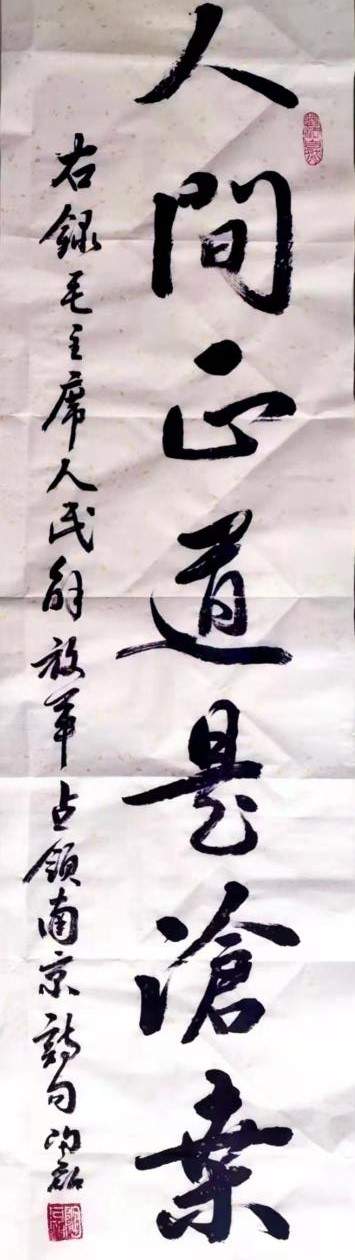 人間正道是滄桑
右録毛主席人民解放军占領南京詩句